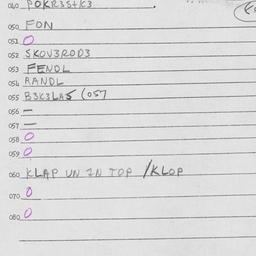 040 POKR3S+K3
050 FON
051 0
052 SKOV3ROD3
053 FENDL
054 AANDL
055 B3K3LAS (057
056 –
057 –
058 0
059 0
060 KLAP UN IN TOP /KLOP
070 0
080 0